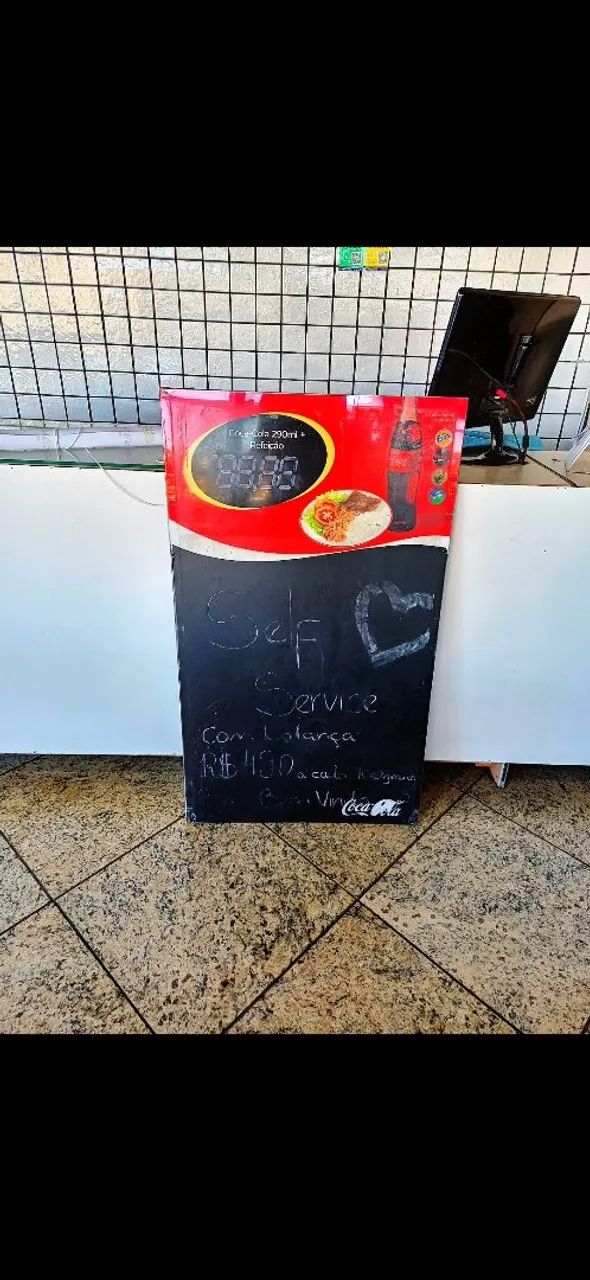 Coca-Cola 290ml +
Refeição
88:88
Self
Service
Com balança
R$ 4,90 a cada 100gramas
Bem Vindo
Coca-Cola